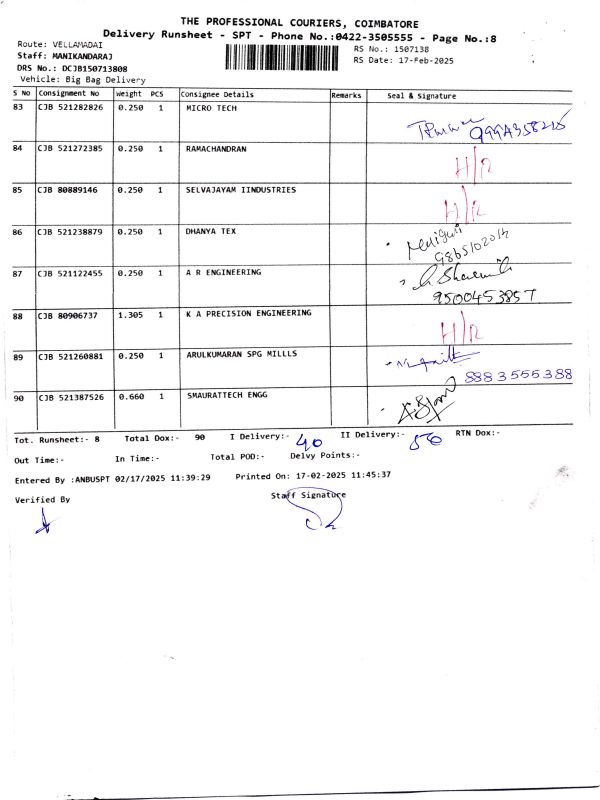 THE PROFESSIONAL COURIERS, COIMBATORE
Delivery Runsheet - SPT - Phone No.:0422-3505555 - Page No.:8
Route: VELLAMADAI
Staff: MANIKANDARAJ
RS No.: 1507138
DRS No.: DCJB150713808
RS Date: 17-Feb-2025
Vehicle: Big Bag Delivery
S No Consignment No Weight PCS Consignee Details Remarks Seal & Signature
83 CJB 521282826 0.250 1 MICRO TECH
84 CJB 521272385 0.250 1 RAMACHANDRAN
H/R
85 CJB 80889146 0.250 1 SELVAJAYAM IINDUSTRIES
H/R
86 CJB 521238879 0.250 1 DHANYA TEX
87 CJB 521122455 0.250 1 A R ENGINEERING
9500453857
88 CJB 80906737 1.305 1 K A PRECISION ENGINEERING
H/R
89 CJB 521260881 0.250 1 ARULKUMARAN SPG MILLLS
8883555388
90 CJB 521387526 0.660 1 SMAURATTECH ENGG
Tot. Runsheet:- 8 Total Dox:- 90 I Delivery:- 40 II Delivery:- 50 RTN Dox:-
Out Time:- In Time:- Total POD:- Delvy Points:-
Entered By :ANBUSPT 02/17/2025 11:39:29 Printed On: 17-02-2025 11:45:37
Verified By Staff Signature